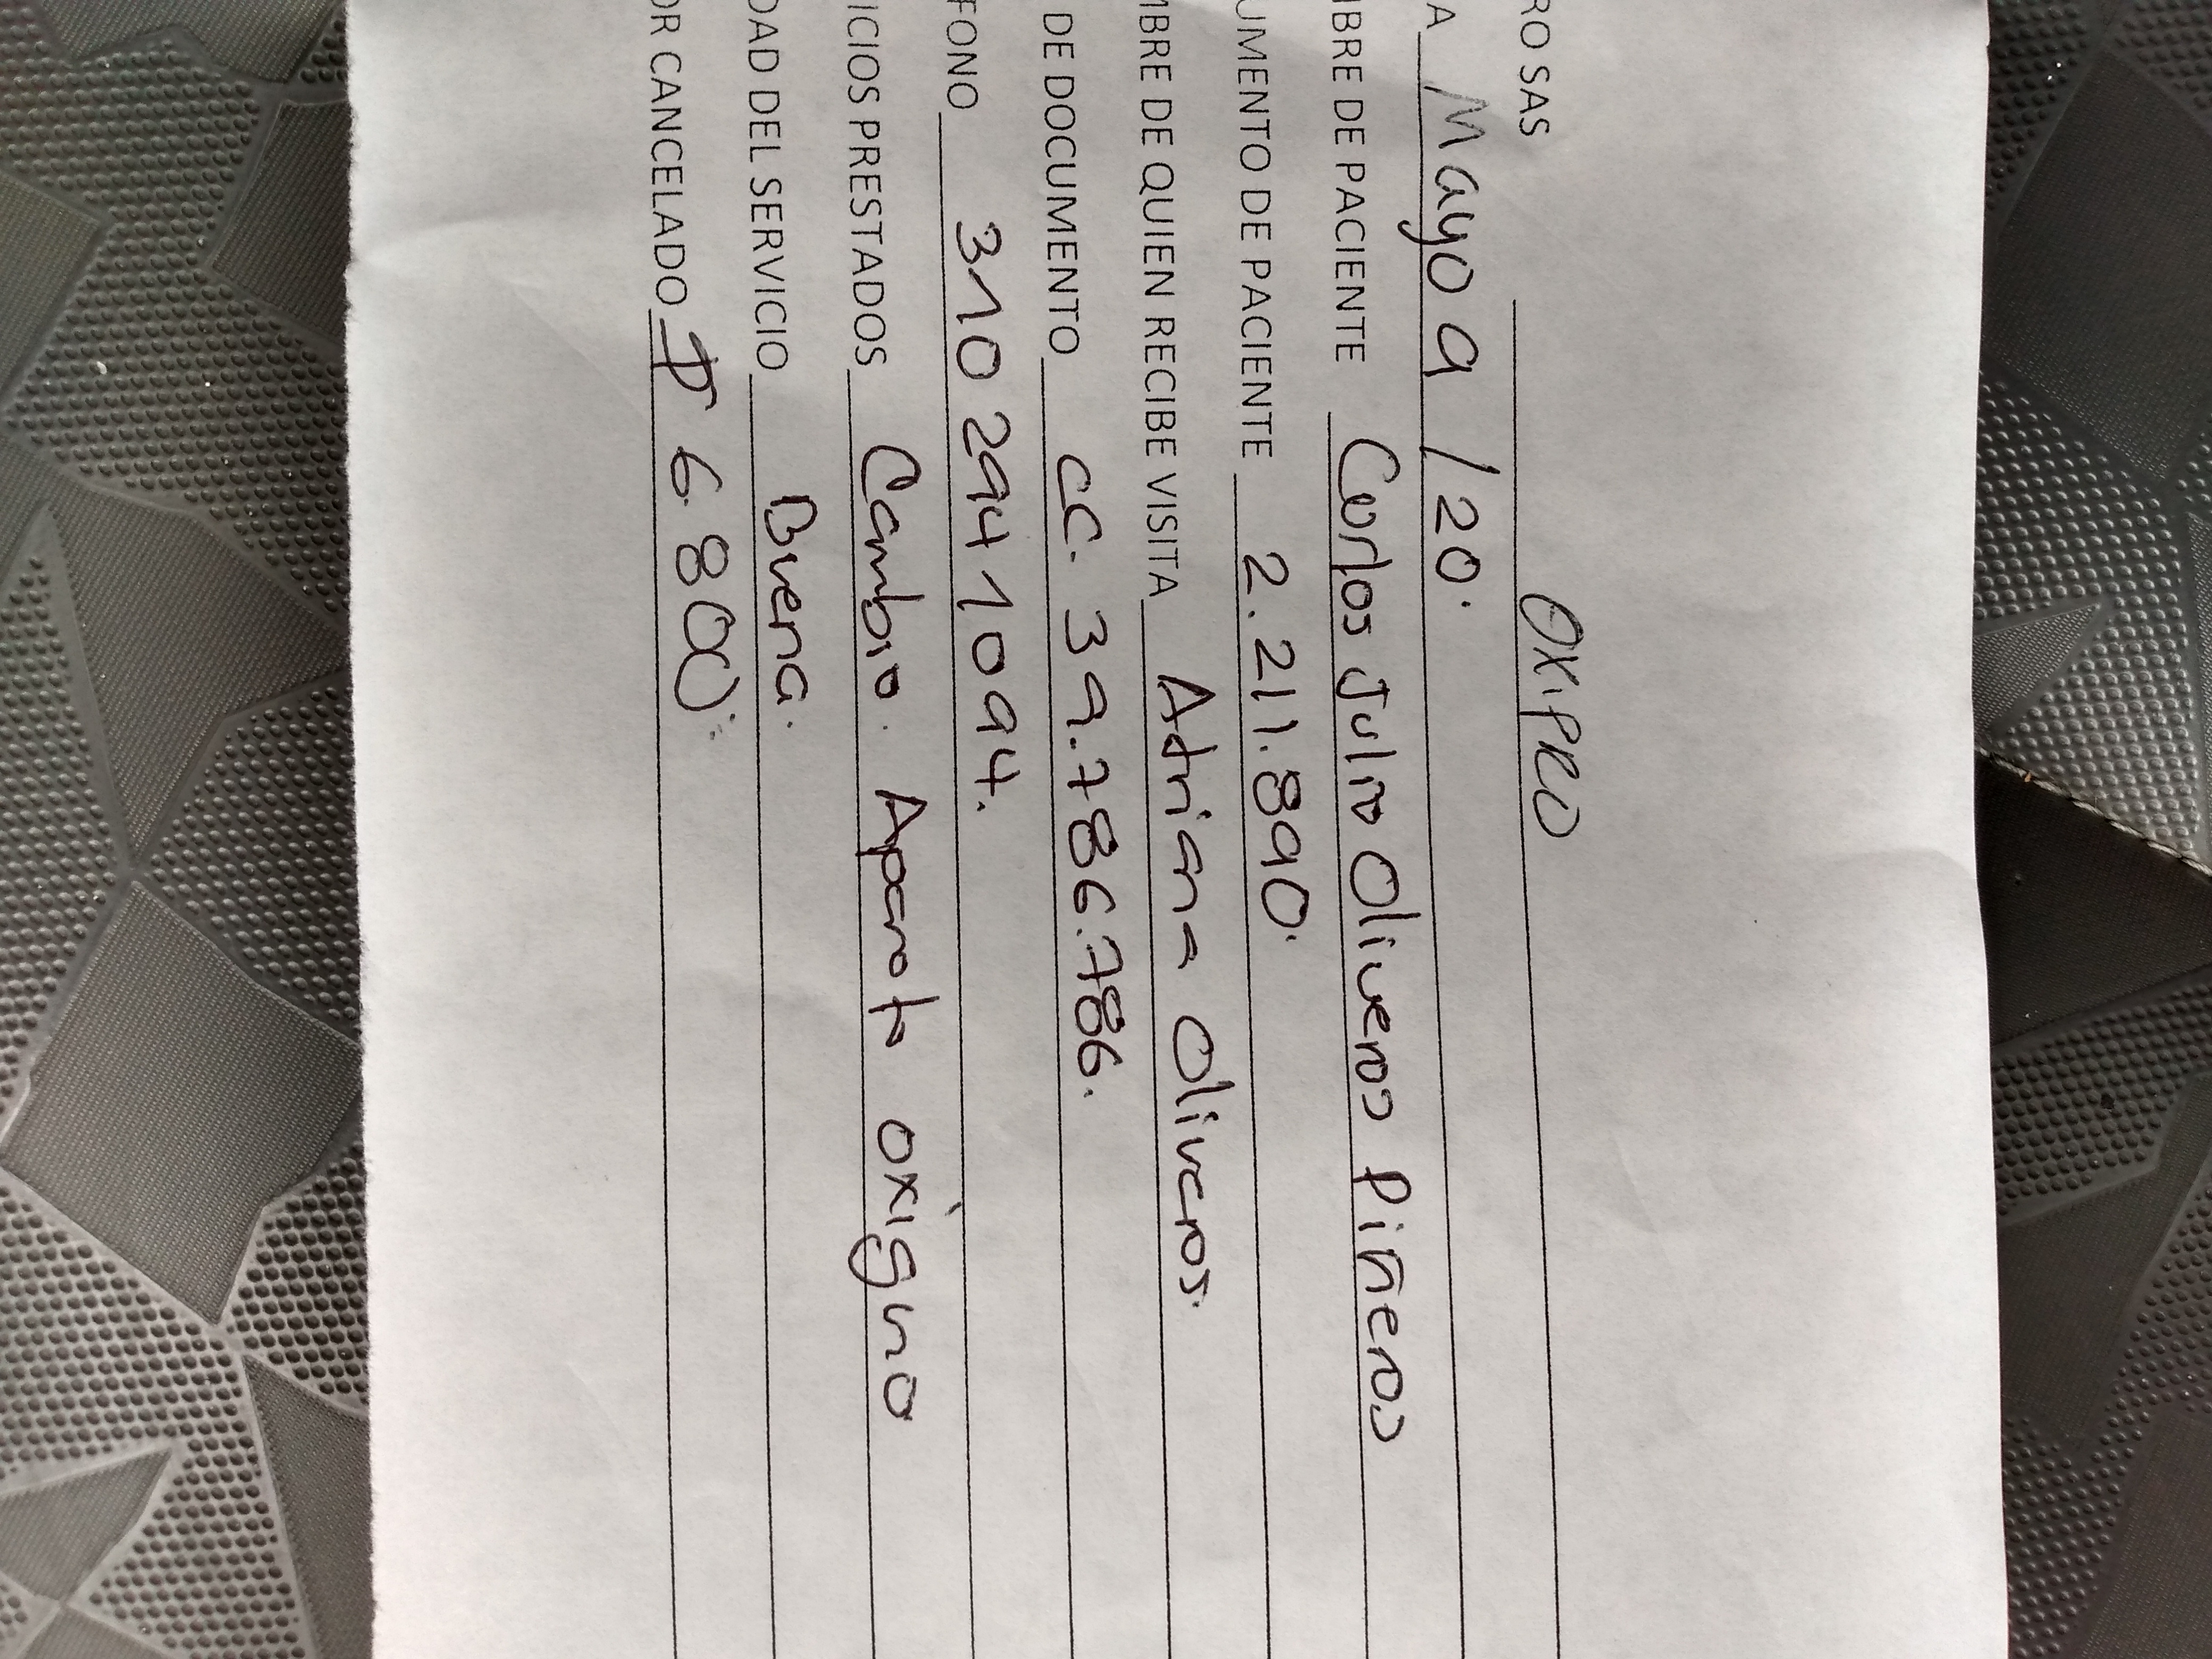 RO SAS OXIPRO
A Mayo 9 / 20.
BRE DE PACIENTE Carlos Julio Oliveros Piñeros
UMENTO DE PACIENTE 2.211.890.
MBRE DE QUIEN RECIBE VISITA Adriana Oliveros.
DE DOCUMENTO CC. 39.786.786.
FONO 310 294 1094.
ICIOS PRESTADOS Cambio. Aparato oxigno
DAD DEL SERVICIO Buena.
OR CANCELADO $ 6.800.